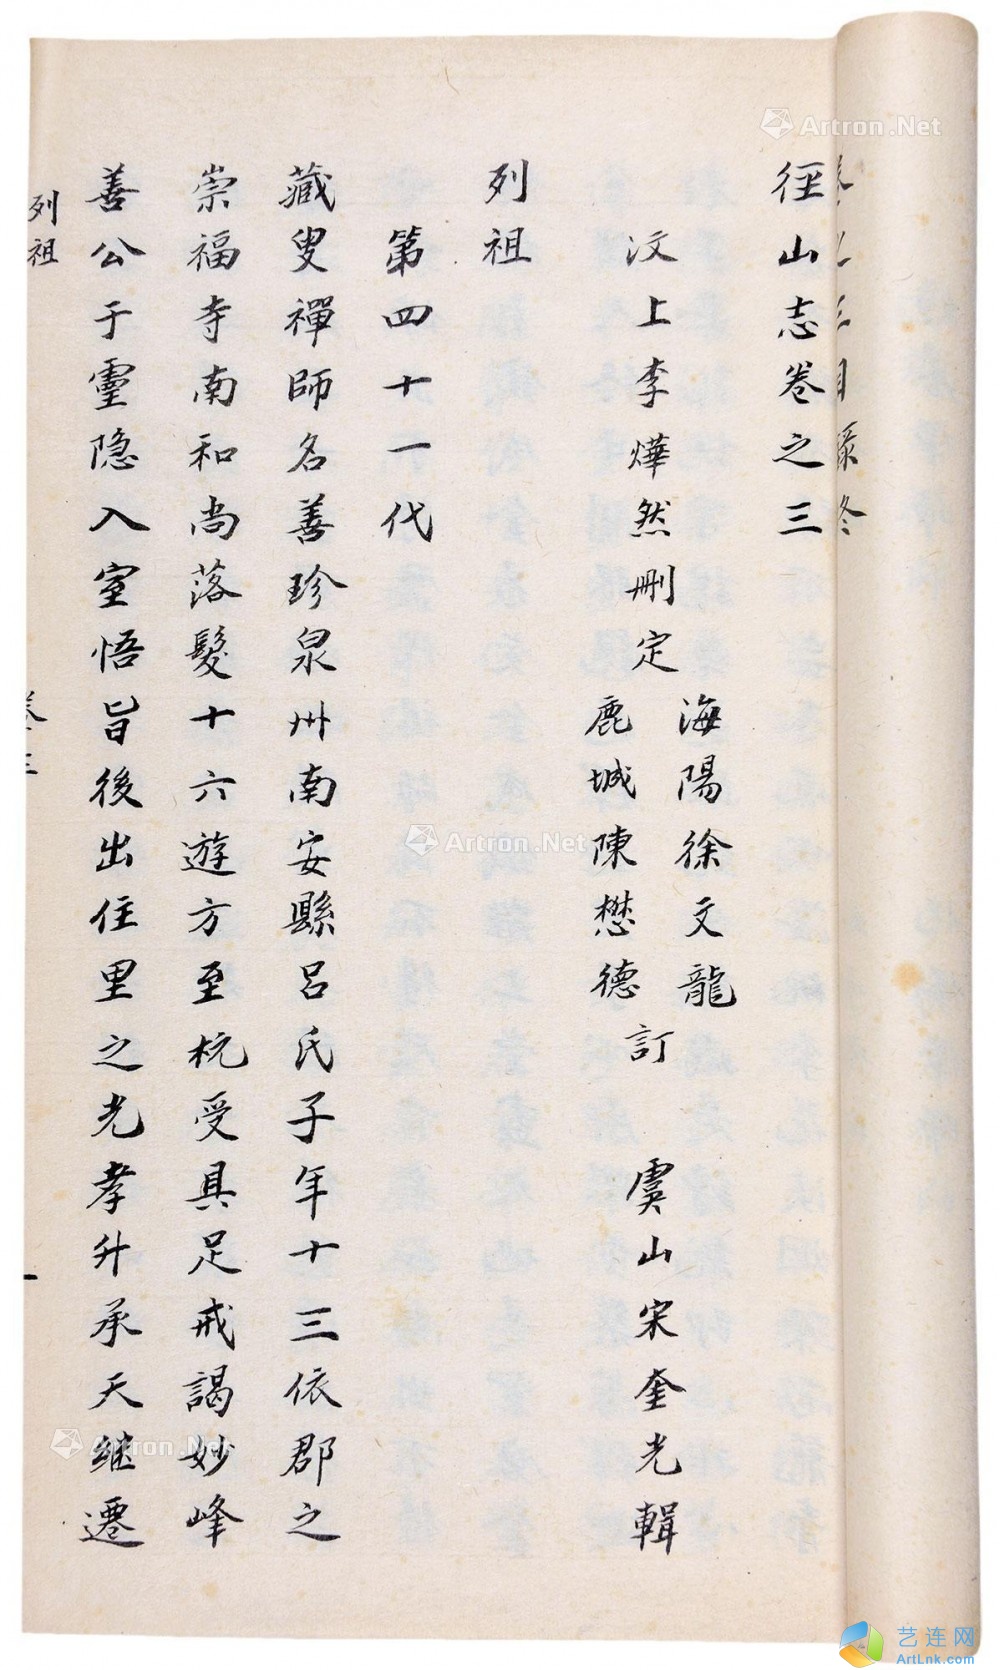 卷之三目錄終
徑山志卷之三
汶上李燁然刪定
海陽徐文龍
鹿城陳懋德
訂
虞山宋奎光輯
列祖
第四十一代
藏叟禪師名善珍泉州南安縣呂氏子年十三依郡之
崇福寺南和尚落髮十六遊方至杭受具足戒謁妙峰
善公于靈隐入室悟旨後出住里之光孝升承天继遷
列祖
卷三
一
Artron.Net
Artron.Net
Artron.Net
艺连网
ArtLnk.com